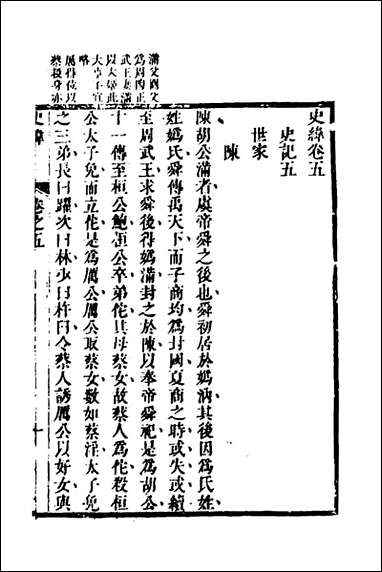 史緯卷五
史記五
世家
陳
陳胡公滿者虞帝舜之後也舜初居於媯汭其後因為氏姓
姓媯氏舜傳禹天下而子商均為封國夏商之時或失或續
至周武王求舜後得媯滿封之於陳以奉帝舜祀是為胡公
十一傳至桓公鮑桓公卒弟佗其母蔡女故蔡人為佗殺桓
公太子免而立佗是為厲公厲公取蔡女數如蔡淫太子免
之三弟長曰躍次曰林少曰杵臼令蔡人誘厲公以好女與
滿父閼父
為周陶正
武王妻滿
以大姬此
大事宜
略
厲得位以
蔡身亦
史緯
卷之五